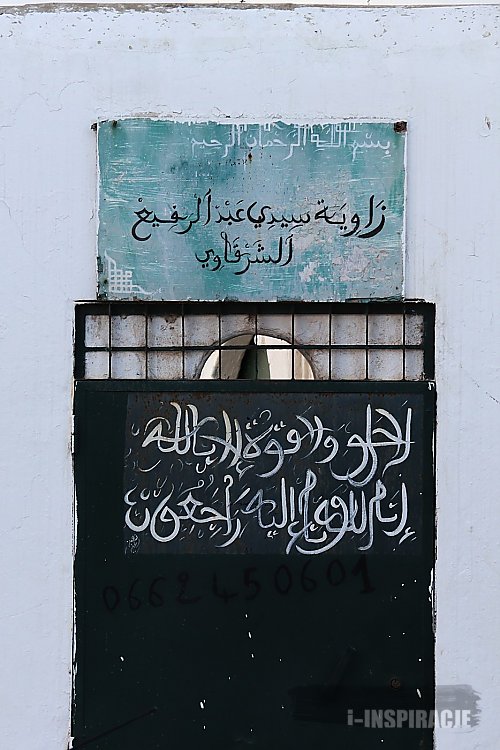 بسم الله الرحمان الرحيم
زَاوِيَة سِيدِي عَبْد الرفِيعْ
الشَرْقَاوِي
لاحول ولا قوة إلا بالله
إنا لله وإنا إليه رَاجعُون
0662450601
i-INSPIRACJE